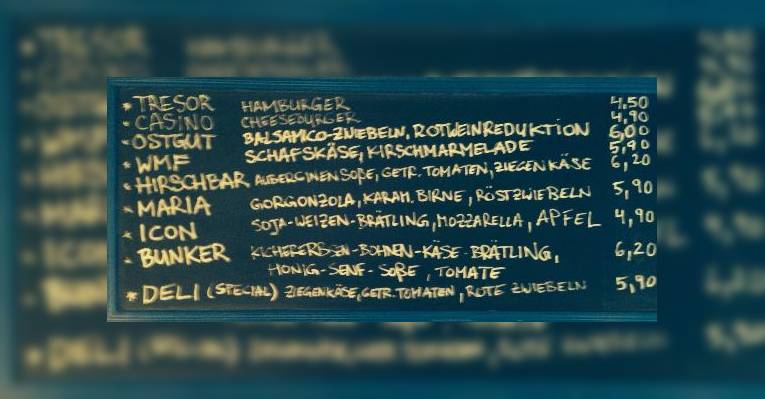 * TRESOR HAMBURGER 4,50
* CASINO CHEESEBURGER 4,90
* OSTGUT BALSAMICO-ZWIEBELN, ROTWEINREDUKTION 6,00
* WMF SCHAFSKÄSE, KIRSCHMARMELADE 5,90
* HIRSCHBAR AUBERGINENSOßE, GETR. TOMATEN, ZIEGENKÄSE 6,20
* MARIA GORGONZOLA, KARAM. BIRNE, RÖSTZWIEBELN 5,90
* ICON SOJA-WEIZEN-BRÄTLING, MOZZARELLA, APFEL 4,90
* BUNKER KICHERERBSEN-BOHNEN-KÄSE-BRÄTLING, 6,20
HONIG-SENF-SOßE, TOMATE
* DELI (SPECIAL) ZIEGENKÄSE, GETR. TOMATEN, ROTE ZWIEBELN 5,90